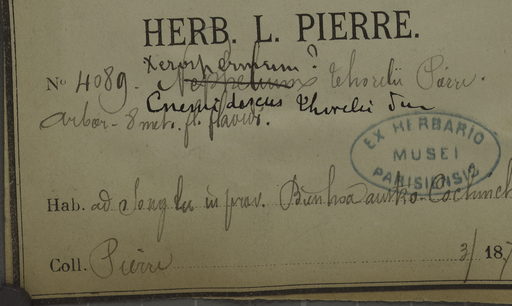 HERB. L. PIERRE.
Xerospermum?
No 4089. Nephelium Thorelii Pierre.
Cnemidiscus Thorelii
Arbor - 8 met. fl. flavidi.
EX HERBARIO
MUSEI
PARISIENSIS
Hab. ad Song lu in prov. Bienhoa austro-Cochinch
Coll. Pierre 3/ 187